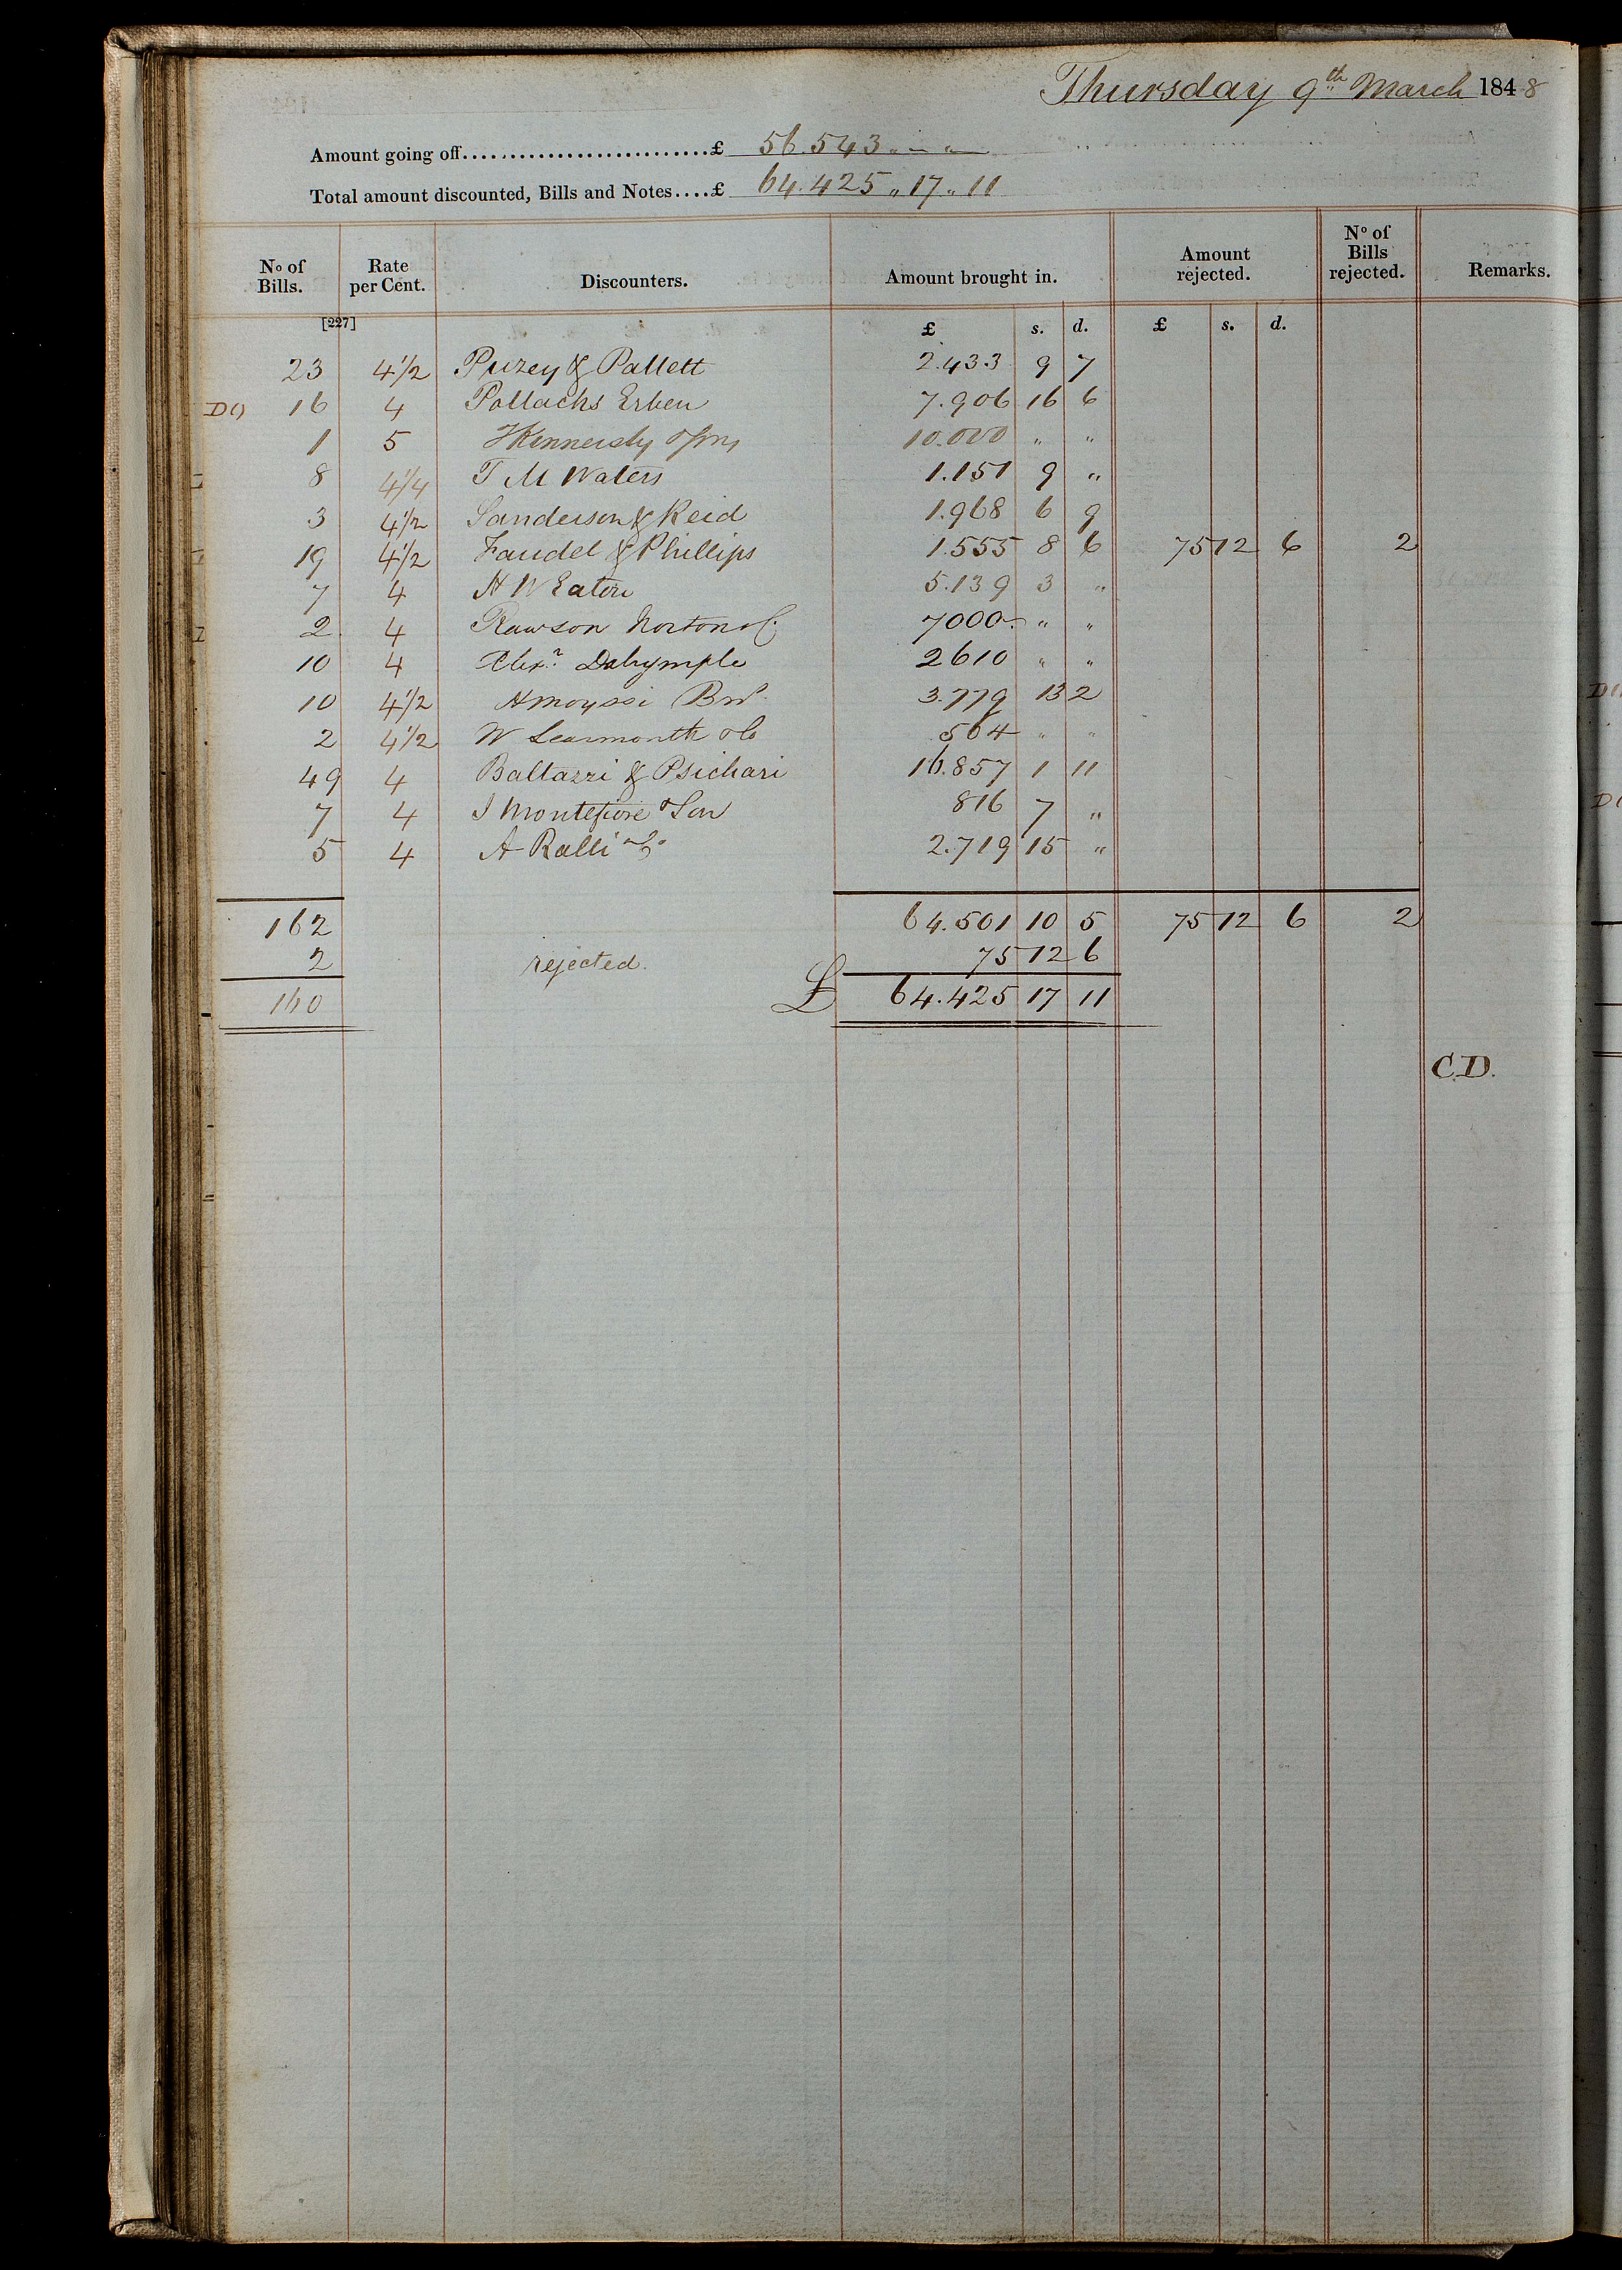 Thursday 9th March 1848
Amount going off..........................£ 56.543 „ – „ –
Total amount discounted, Bills and Notes....£ 64.425 „ 17 „ 11
No of Bills. Rate per Cent. Discounters. Amount brought in. Amount rejected. No of Bills rejected. Remarks.
[227] £ s. d. £ s. d.
23 4½ Puzey & Pallett 2.433 9 7
DO 16 4 Pollachs Erben 7.906 16 6
1 5 10.000 „ „
8 4¼ T M Waters 1.151 9 „
3 4½ Sanderson & Reid 1.968 6 9
19 4½ Faudel & Phillips 1.555 8 6 75 12 6 2
7 4 H W Eaton 5.139 3 „
2 4 Rawson Norton & Co 7000 „ „
10 4 Alexr Dalrymple 2610 „ „
10 4½ Amoyssi Bros 3.779 13 2
2 4½ W Learmonth & Co 564 „ „
49 4 Baltazzi & Psichari 16.857 1 11
7 4 J Montefiore & Son 816 7 „
5 4 A Ralli & Co 2.719 15 „
162 64.501 10 5 75 12 6 2
2 rejected. 75 12 6
160 £ 64.425 17 11
C.D.